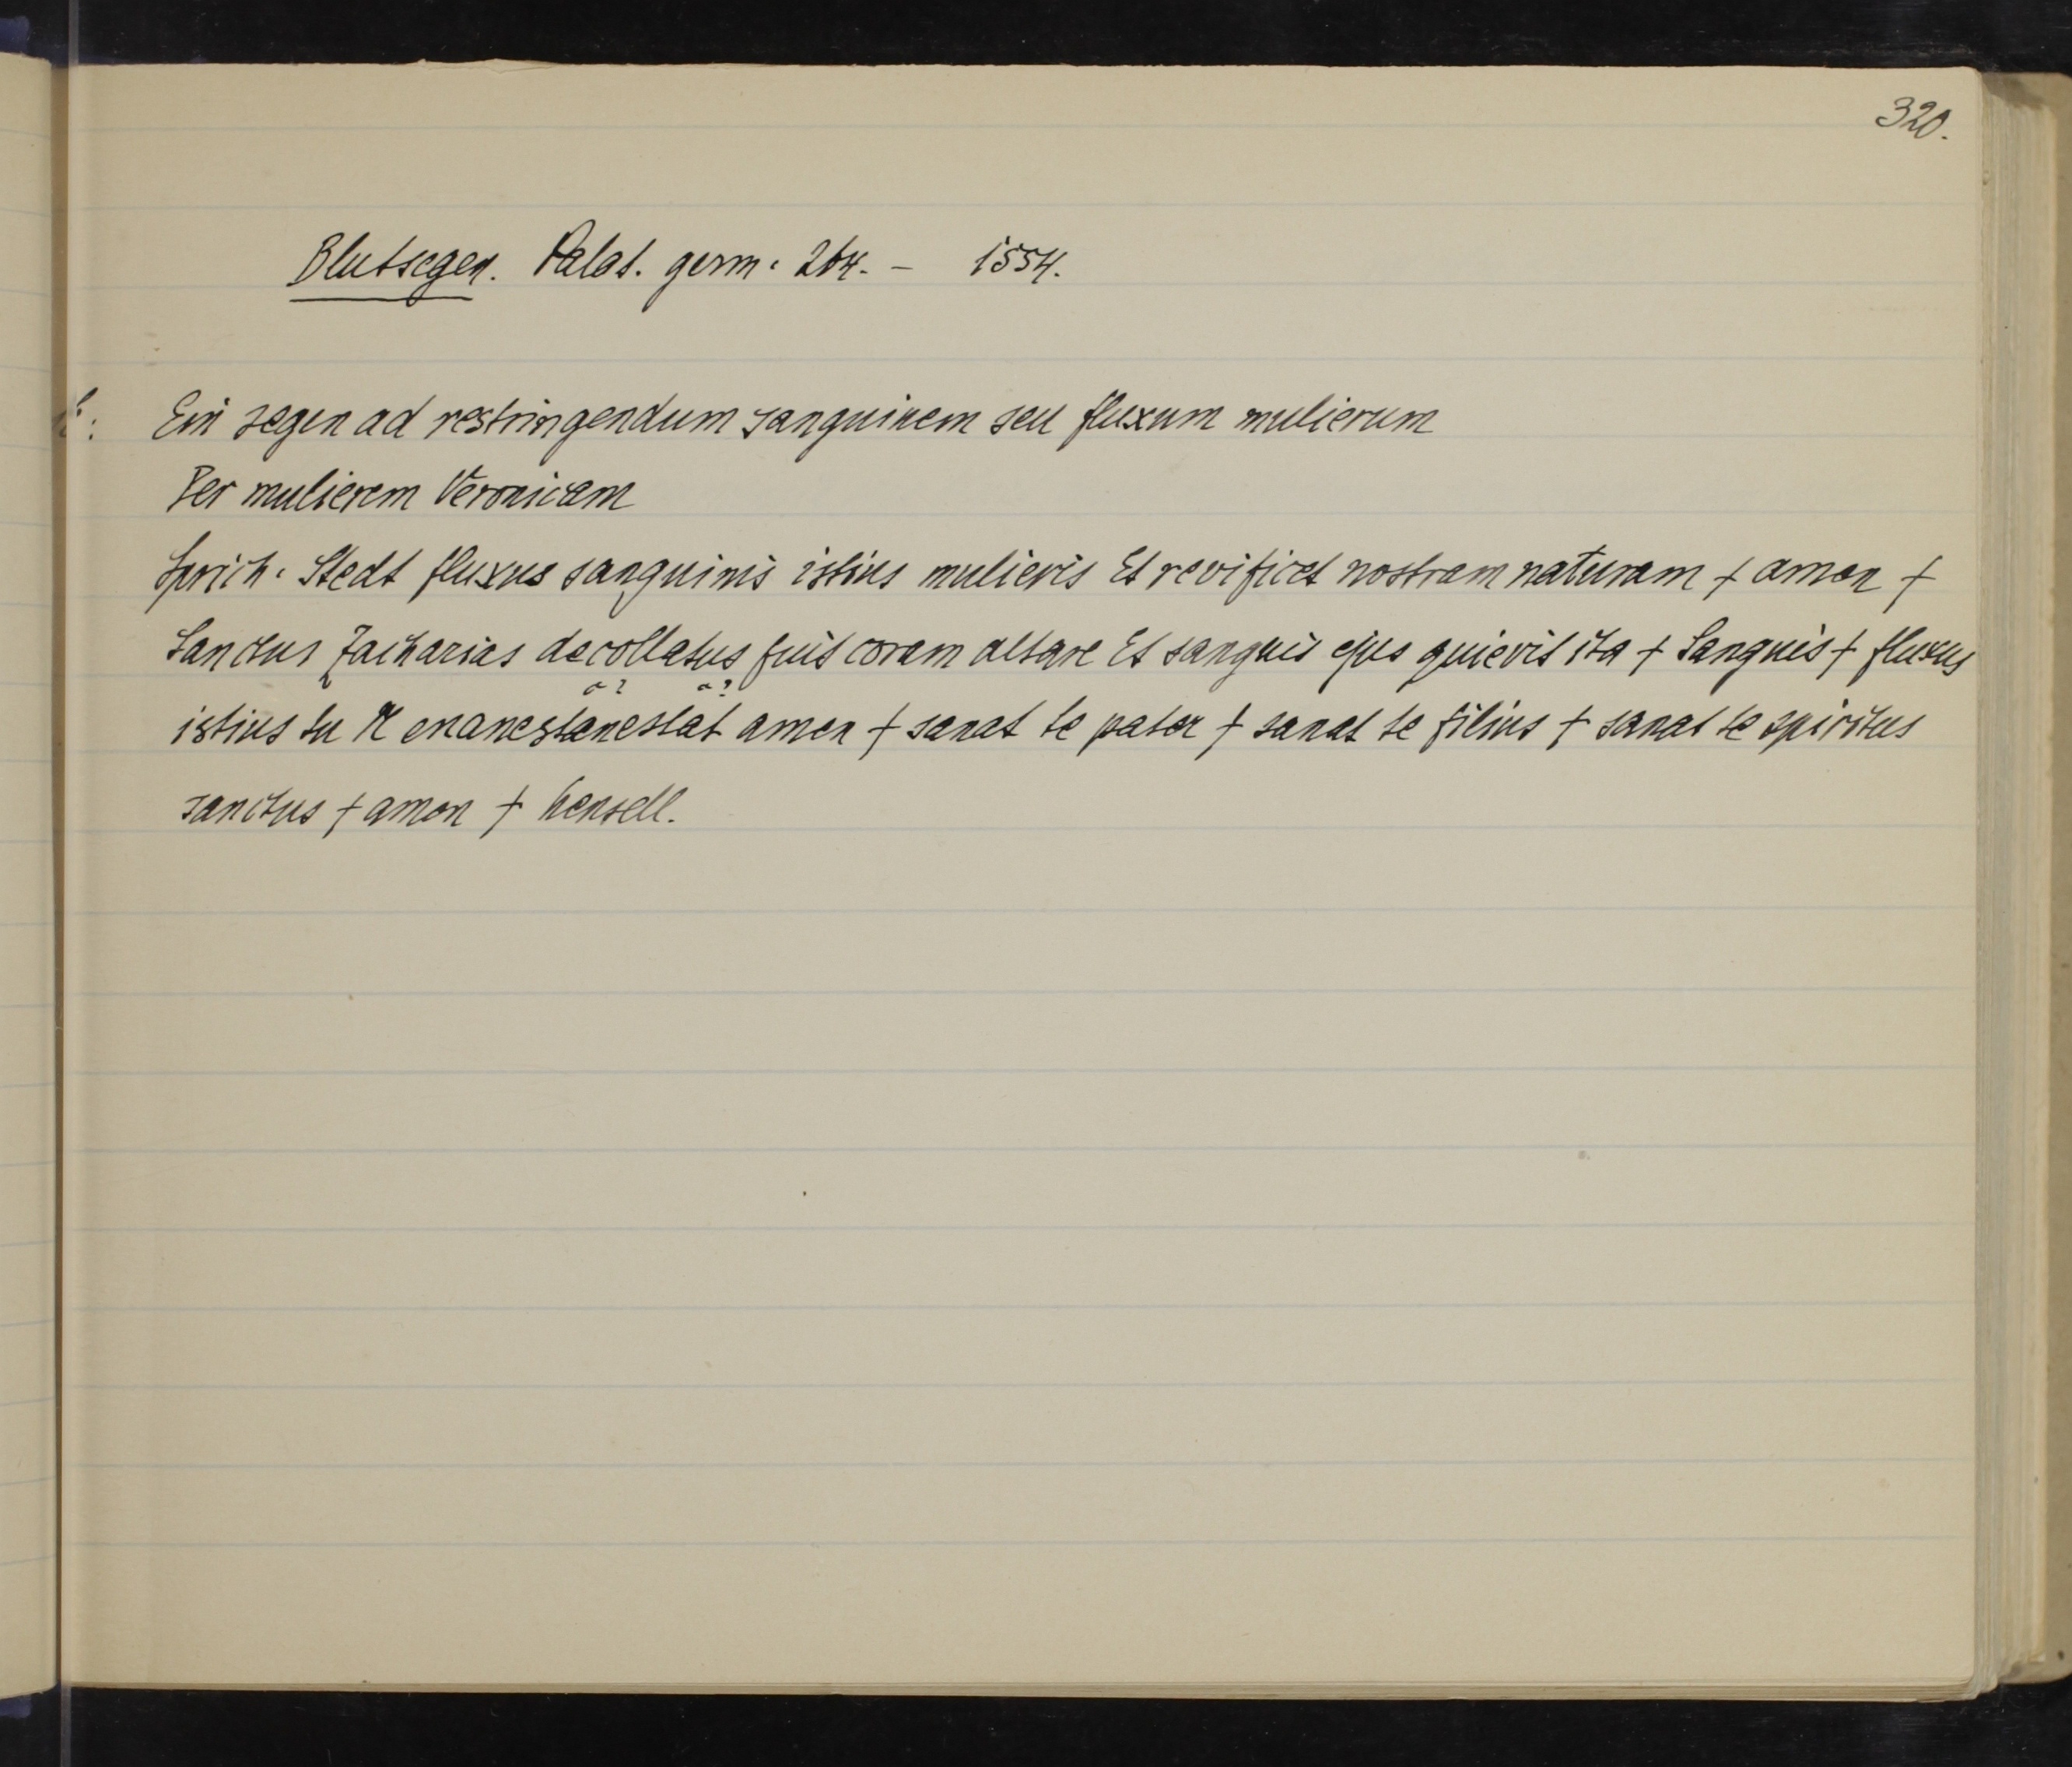 320.
Blutsegen. Palat. germ. 264. - 1554.
Ein segen ad restringendum sanguinem seu fluxum mulierum
Per mulierem Veronicam
Sprich. Stedt fluxus sanguinis istius mulieris Et revificet nostram naturam + amen +
Sanctus Zacharias decollatus fuit coram altare Et sanguis ejus quievit ita + Sanguis + fluxus
a? a?
istius tu N enanestenestat amen + sanat te pater + sanat te filius + sanat te spiritus
sanctus + amen + hensell.